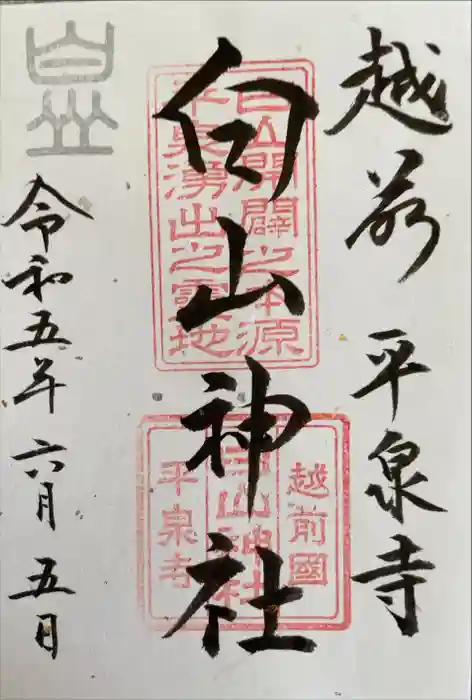 越前 平泉寺
白山神社
令和五年 六月 五日
白山開闢之本源
平泉湧出之靈地
越前國
白山神社
平泉寺